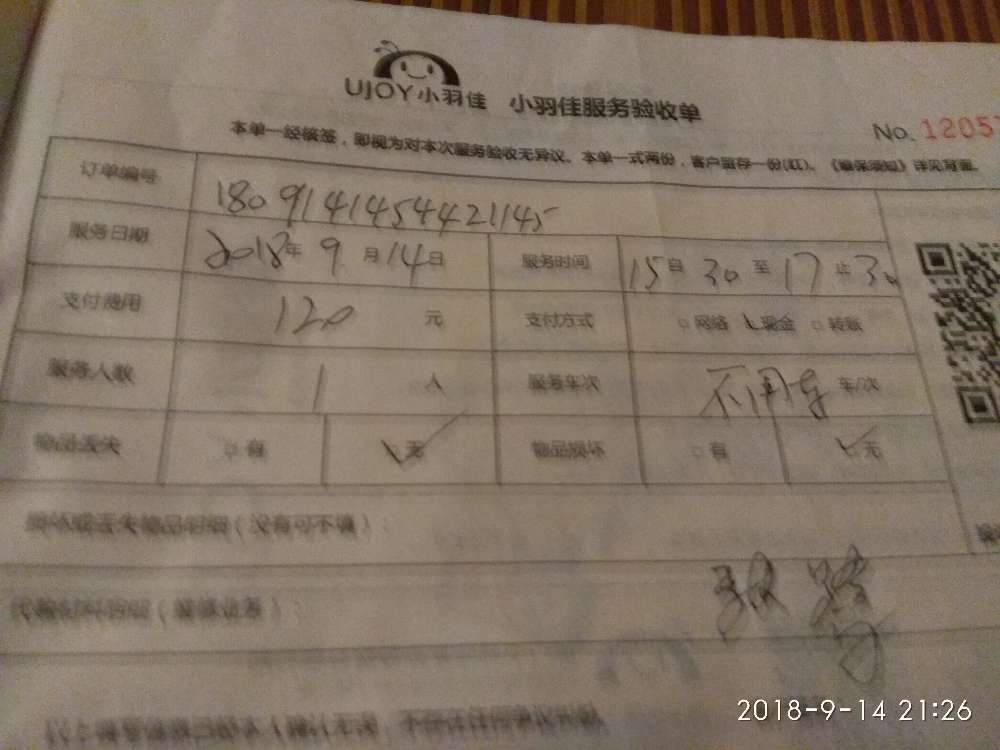 UJOY小羽佳 小羽佳服务验收单
No. 1205
本单一经核签,即视为对本次服务验收无异议。本单一式两份,客户留存一份(红)。《维保须知》详见背面。
订单编号 1809141454421145
服务日期 2018年 9 月 14 日 服务时间 15 自 30 至 17 止 30
支付费用 120 元 支付方式 □网络 ☑现金 □转账
服务人数 1 人 服务车次 不用车 车/次
物品丢失 □有 ☑无 物品损坏 □有 ☑无
损坏或丢失物品明细(没有可不填):
2018-9-14 21:26